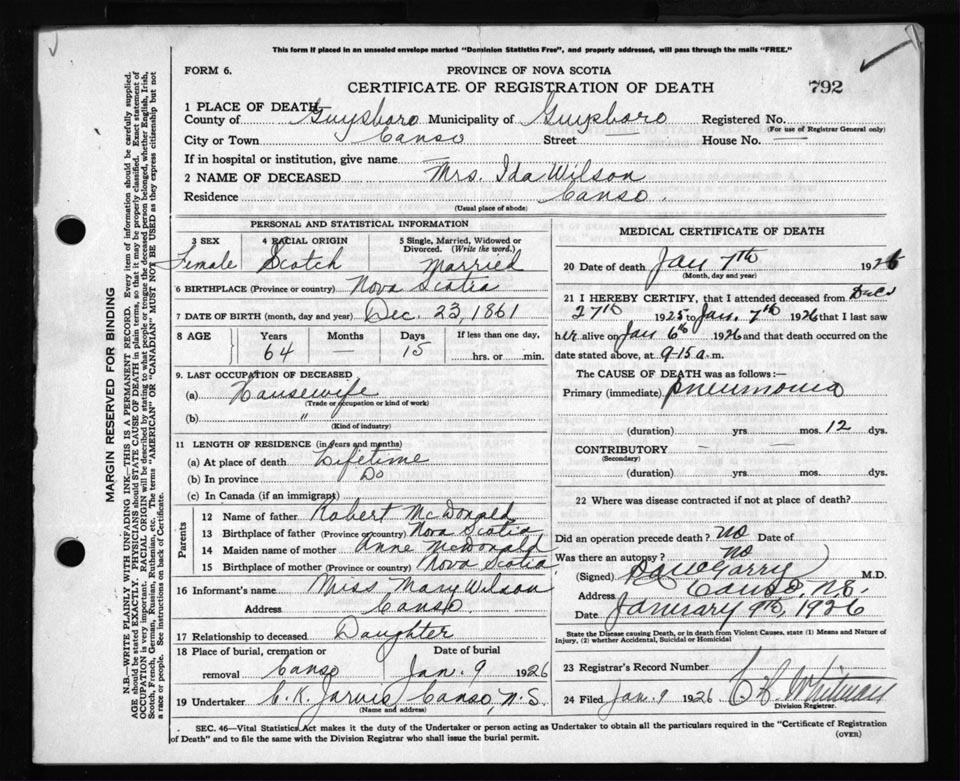 This form if placed in an unsealed envelope marked "Dominion Statistics Free", and properly addressed, will pass through the mails "FREE."
FORM 6.
PROVINCE OF NOVA SCOTIA
CERTIFICATE OF REGISTRATION OF DEATH
792
1 PLACE OF DEATH
County of Guysboro Municipality of Guysboro Registered No.
(For use of Registrar General only)
City or Town Canso Street House No. —
If in hospital or institution, give name —
2 NAME OF DECEASED Mrs. Ida Wilson
Residence Canso.
(Usual place of abode)
PERSONAL AND STATISTICAL INFORMATION
3 SEX Female
4 RACIAL ORIGIN Scotch
5 Single, Married, Widowed or Divorced. (Write the word.) Married
6 BIRTHPLACE (Province or country) Nova Scotia
7 DATE OF BIRTH (month, day and year) Dec. 23, 1861
8 AGE Years 64 Months — Days 15 If less than one day, hrs. or min.
9. LAST OCCUPATION OF DECEASED
(a) Housewife
(Trade or occupation or kind of work)
(b) "
(Kind of industry)
11 LENGTH OF RESIDENCE (in years and months)
(a) At place of death Lifetime
(b) In province Do
(c) In Canada (if an immigrant)
Parents
12 Name of father Robert McDonald
13 Birthplace of father (Province or country) Nova Scotia
14 Maiden name of mother Anne McDonald
15 Birthplace of mother (Province or country) Nova Scotia
16 Informant's name Miss Mary Wilson
Address Canso.
17 Relationship to deceased Daughter
18 Place of burial, cremation or removal Canso
Date of burial Jan. 9 1926
19 Undertaker C. K. Jarvis Canso, N.S.
(Name and address)
MEDICAL CERTIFICATE OF DEATH
20 Date of death Jan 7th 1926
(Month, day and year)
21 I HEREBY CERTIFY, that I attended deceased from Dec
27th 1925 to Jan. 7th 1926 that I last saw
her alive on Jan 6th 1926 and that death occurred on the
date stated above, at 9-15 a.m.
The CAUSE OF DEATH was as follows:—
Primary (immediate) Pneumonia
(duration) yrs. mos. 12 dys.
CONTRIBUTORY — —
(Secondary)
(duration) yrs. mos. dys.
22 Where was disease contracted if not at place of death?
Did an operation precede death? no Date of
Was there an autopsy? no
(Signed) M.D.
Address Canso, N.S.
Date January 9th, 1926
State the Disease causing Death, or in death from Violent Causes, state (1) Means and Nature of Injury, (2) whether Accidental, Suicidal or Homicidal
23 Registrar's Record Number
24 Filed Jan. 9 1926 Whitman
Division Registrar.
SEC. 46—Vital Statistics Act makes it the duty of the Undertaker or person acting as Undertaker to obtain all the particulars required in the "Certificate of Registration
of Death" and to file the same with the Division Registrar who shall issue the burial permit. (OVER)
MARGIN RESERVED FOR BINDING
N.B.—WRITE PLAINLY WITH UNFADING INK—THIS IS A PERMANENT RECORD. Every item of information should be carefully supplied.
AGE should be stated EXACTLY. PHYSICIANS should STATE CAUSE OF DEATH in plain terms, so that it may be properly classified. Exact statement of
OCCUPATION is very important. RACIAL ORIGIN will be described by stating to what people or tongue the deceased person belonged, whether English, Irish,
Scotch, French, German, Russian, Ruthenian, etc. The terms "AMERICAN" OR "CANADIAN" MUST NOT BE USED as they express citizenship but not
a race or people. See instructions on back of Certificate.